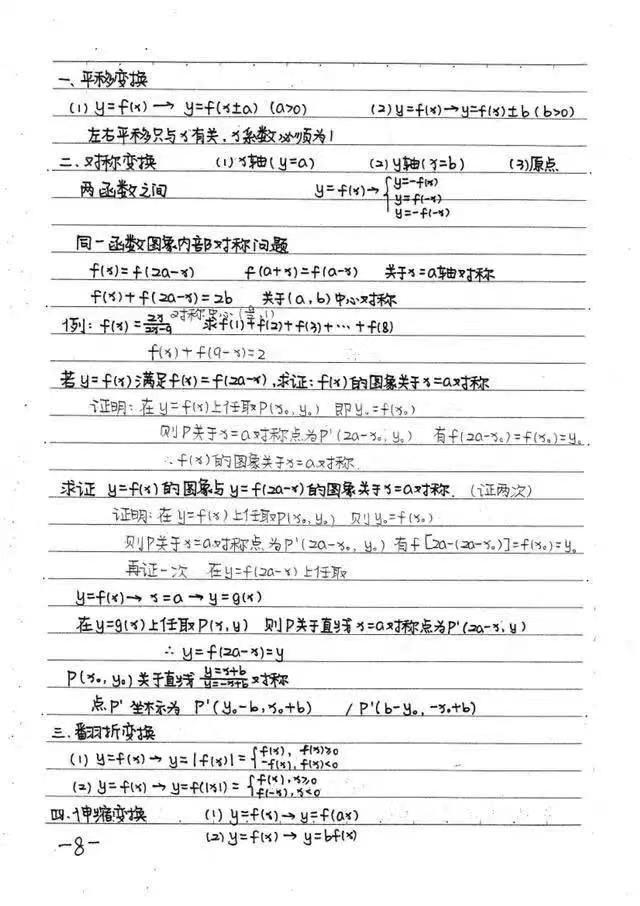 一、平移变换
(1) y=f(x) → y=f(x±a) (a>0) (2) y=f(x)→y=f(x)±b (b>0)
左右平移只与x有关，x系数必须为1
二、对称变换 (1) x轴(y=a) (2) y轴(x=b) (3)原点
两函数之间 y=f(x)→{y=-f(x)
y=f(-x)
y=-f(-x)
同一函数图象内部对称问题
f(x)=f(2a-x) f(a+x)=f(a-x) 关于x=a轴对称
f(x)+f(2a-x)=2b 关于(a,b)中心对称
对称中心(9/2,1)
例: f(x)=2x/(2x-9) 求f(1)+f(2)+f(3)+…+f(8)
f(x)+f(9-x)=2
若y=f(x)满足f(x)=f(2a-x),求证:f(x)的图象关于x=a对称
证明:在y=f(x)上任取P(x₀,y₀) 即y₀=f(x₀)
则P关于x=a对称点为P'(2a-x₀,y₀) 有f(2a-x₀)=f(x₀)=y₀.
∴f(x)的图象关于x=a对称.
求证 y=f(x)的图象与y=f(2a-x)的图象关于x=a对称. (证两次)
证明:在y=f(x)上任取P(x₀,y₀) 则y₀=f(x₀)
则P关于x=a对称点为P'(2a-x₀,y₀) 有f[2a-(2a-x₀)]=f(x₀)=y₀
再证一次 在y=f(2a-x)上任取
y=f(x)→x=a→y=g(x)
在y=g(x)上任取P(x,y) 则P关于直线x=a对称点为P'(2a-x,y)
∴ y=f(2a-x)=y
P(x₀,y₀)关于直线 y=x+b
y=-x+b 对称
点P'坐标为 P'(y₀-b,x₀+b) / P'(b-y₀,-x₀+b)
三、翻折变换
(1) y=f(x) → y=|f(x)|={f(x), f(x)≥0
-f(x), f(x)<0
(2) y=f(x) → y=f(|x|)={f(x),x≥0
f(-x),x<0
四、伸缩变换 (1) y=f(x)→y=f(ax)
(2) y=f(x)→y=bf(x)
-8-